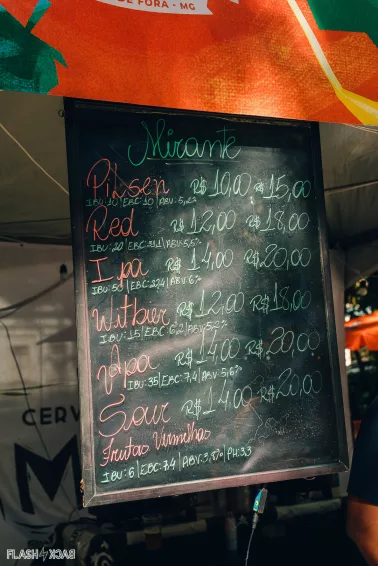 DE FORA - MG
Mirante
Pilsen R$ 10,00 R$ 15,00
IBU: 10 | EBC: 10 | ABV: 5,2%
Red R$ 12,00 R$ 18,00
IBU: 20 | EBC: 31,1 | ABV: 5,5%
Ipa R$ 14,00 R$ 20,00
IBU: 50 | EBC: 27,4 | ABV: 6%
Witbier R$ 12,00 R$ 18,00
IBU: 15 | EBC: 6,2 | ABV: 5,2%
Apa R$ 14,00 R$ 20,00
IBU: 35 | EBC: 7,4 | ABV: 5,6%
Sour R$ 14,00 R$ 20,00
Frutas Vermelhas
IBU: 6 | EBC: 7,4 | ABV: 3,87% | PH: 3,3
CERV
M
FLASHBACK